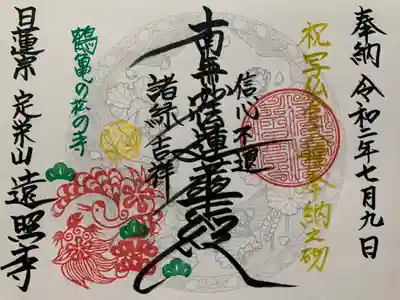 奉納 令和二年七月九日
祝写仏 奉納之砌
信心不退
南無妙法蓮華経
諸縁吉祥
鶴亀の松の寺
日蓮宗 定栄山 遠照寺